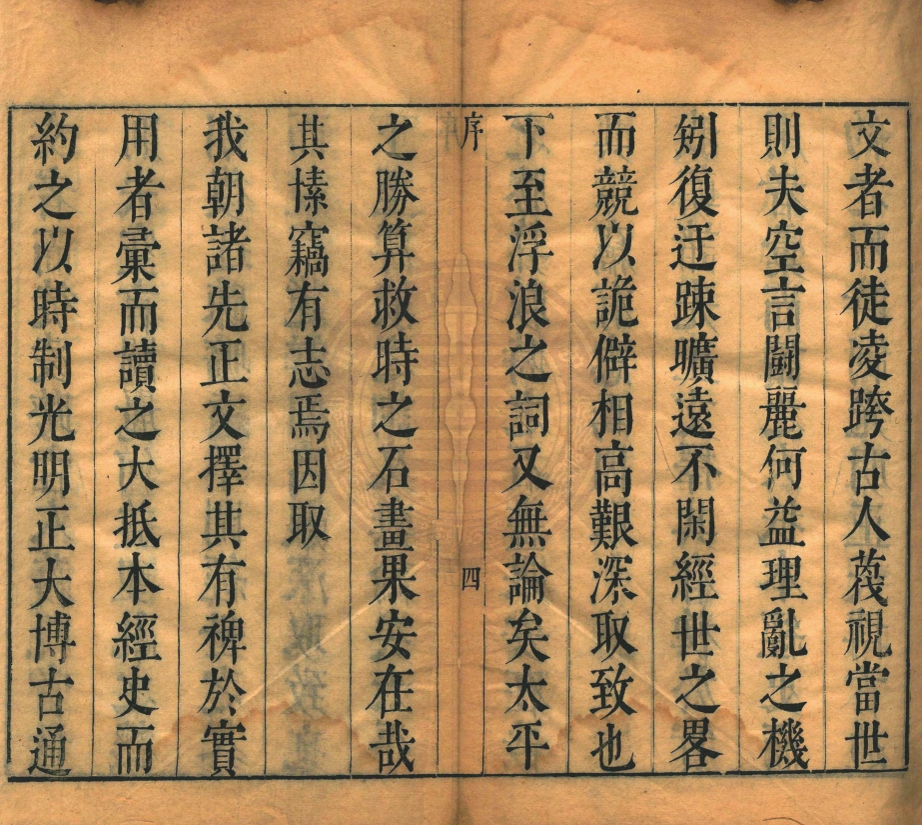 文者而徒凌跨古人蔑視當世
則夫空言鬭麗何益理亂之機
矧復迂踈曠遠不閑經世之畧
而競以詭僻相高艱深取致也
下至浮浪之詞又無論矣太平
序
四
之勝算救時之石畫果安在哉
其愫竊有志焉因取
我朝諸先正文擇其有裨於實
用者彙而讀之大抵本經史而
約之以時制光明正大博古通